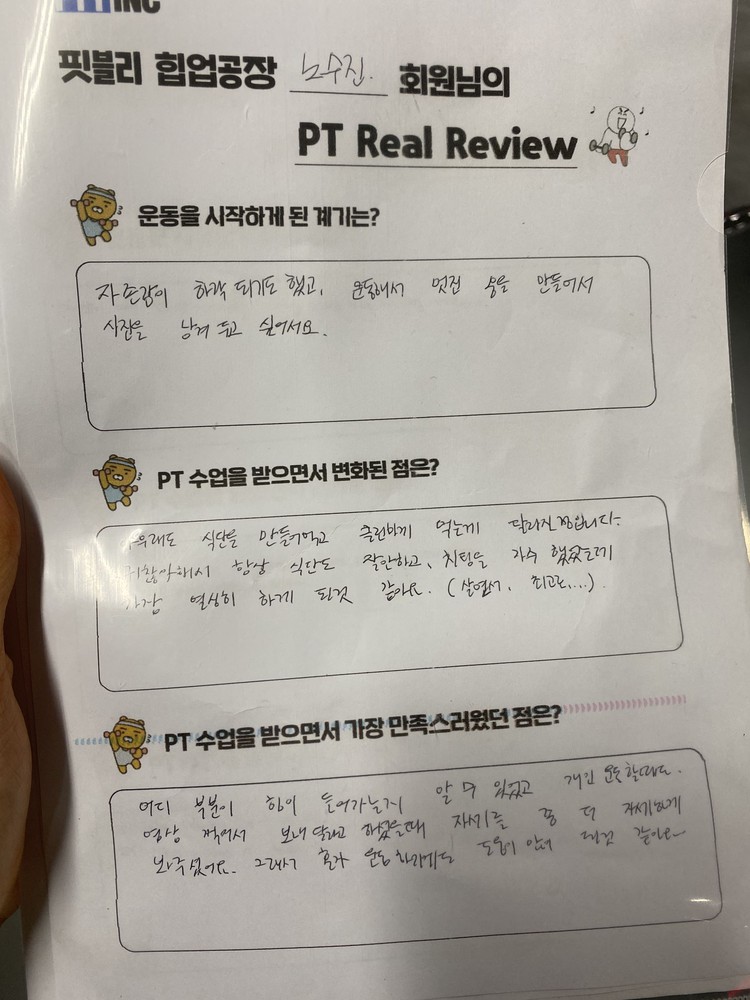 INC
핏블리 힙업공장 노수진. 회원님의
PT Real Review
운동을 시작하게 된 계기는?
자존감이 하락 되기도 했고, 운동해서 멋진 몸을 만들어서
사진을 남겨 두고 싶어서요.
PT 수업을 받으면서 변화된 점은?
식단을 만들어먹고 클린하게 먹는게 달라진점입니다.
귀찮아해서 항상 식단도 잘안하고, 치팅을 자주 했었는데
가장 열심히 하게 된것 같아요. (살면서, 최고로,...)
PT 수업을 받으면서 가장 만족스러웠던 점은?
어디 부분이 힘이 들어가는지 알 수 있었고 개인 운동할때도.
영상 찍어서 보내 달라고 하셨을때 자세를 좀 더 자세하게
봐주셨어요. 그래서 혼자 운동하기에도 도움이 많이 된것 같아요